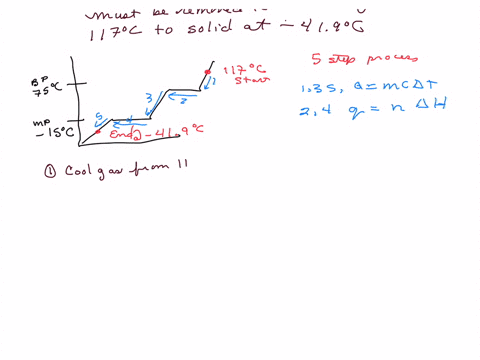 must be removed
117°C to solid at -41.9°C
BP
75°C
MP
-15°C
117°C
Start
1
2
3
4
5
End -41.9°C
5 step process
1,35, q=mCΔT
2,4 q = n ΔH
① Cool gas from 11